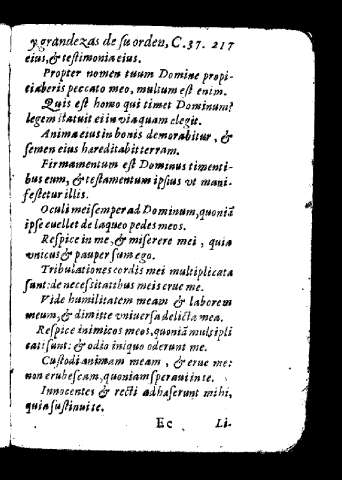 y grandezas de su orden, C.37. 217
eius, & testimonia eius.
Propter nomen tuum Domine propi-
tiaberis peccato meo, multum est enim.
Quis est homo qui timet Dominum?
legem statuit ei in via quam elegit.
Anima eius in bonis demorabitur, &
semen eius hereditabit terram.
Firmamentum est Dominus timenti-
bus eum, & testamentum ipsius vt mani-
festetur illis.
Oculi mei semper ad Dominum, quoniã
ipse euellet de laqueo pedes meos.
Respice in me, & miserere mei, quia
vnicus & pauper sum ego.
Tribulationes cordis mei multiplicata
sunt: de necessitatibus meis erue me.
Vide humilitatem meam & laborem
meum, & dimitte vniuersa delicta mea.
Respice inimicos meos, quoniã multipli
cati sunt: & odio iniquo oderunt me.
Custodi animam meam, & erue me:
non erubescam, quoniam speraui in te.
Innocentes & recti adhaserunt mihi,
quia sustinui te.
Ee Li-